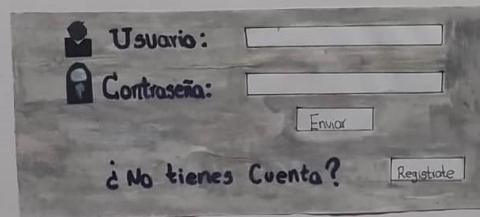 Usuario:
Contraseña:
Enviar
¿No tienes Cuenta?
Registrate